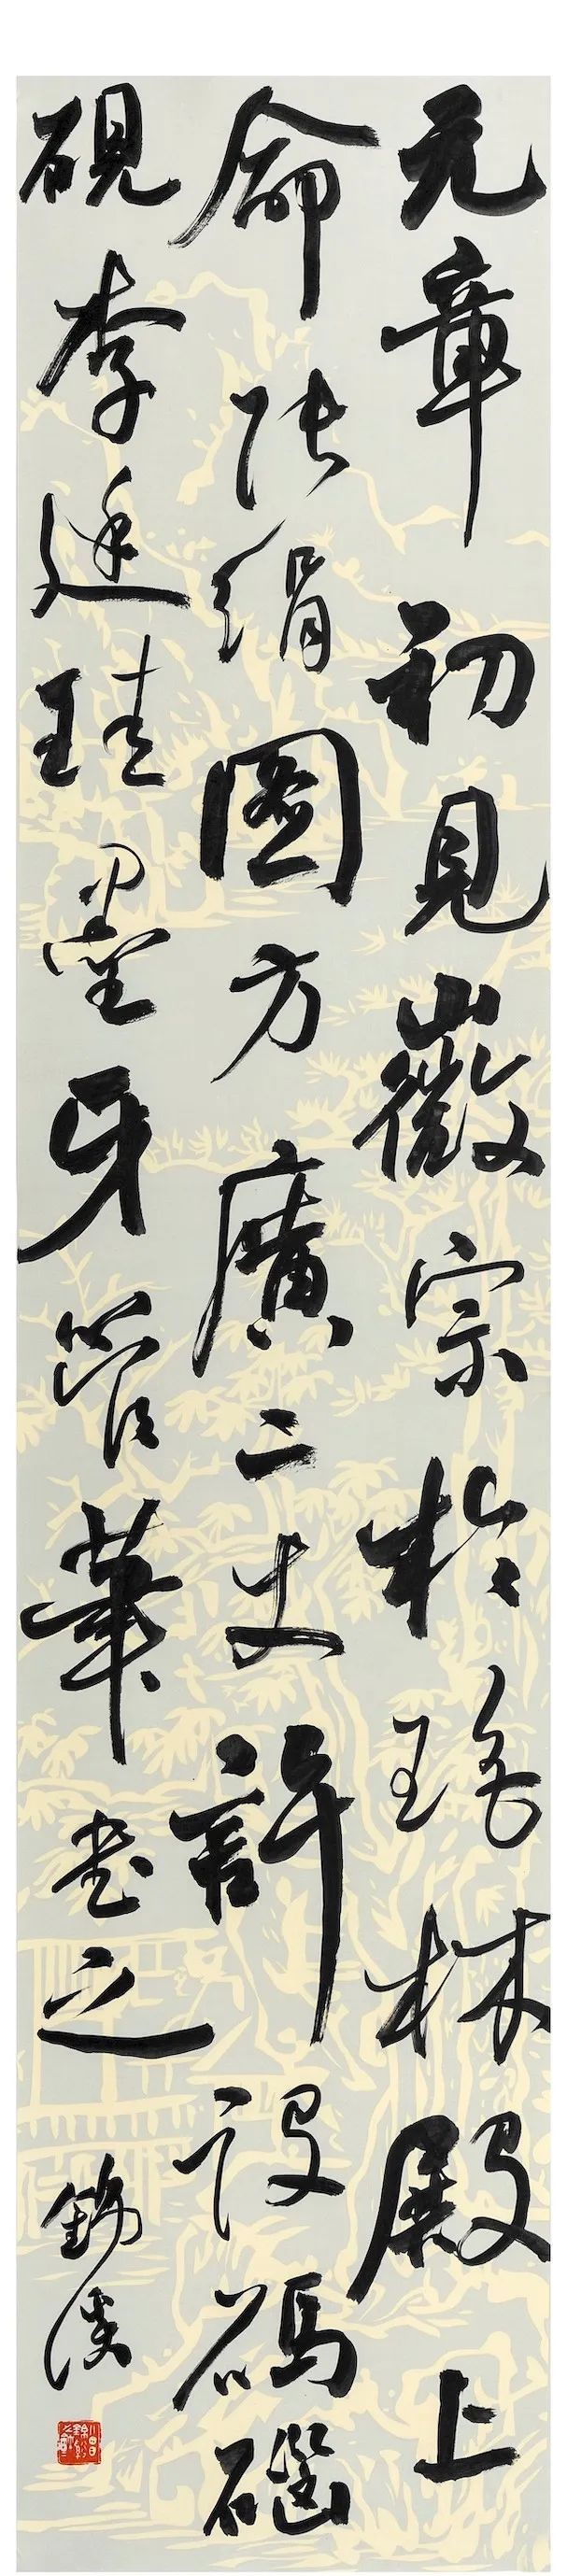 元章初見徽宗於瑤林殿上
命張絹圖方廣二丈許設碼碯
硯李廷珪墨牙管筆書之
錦溪